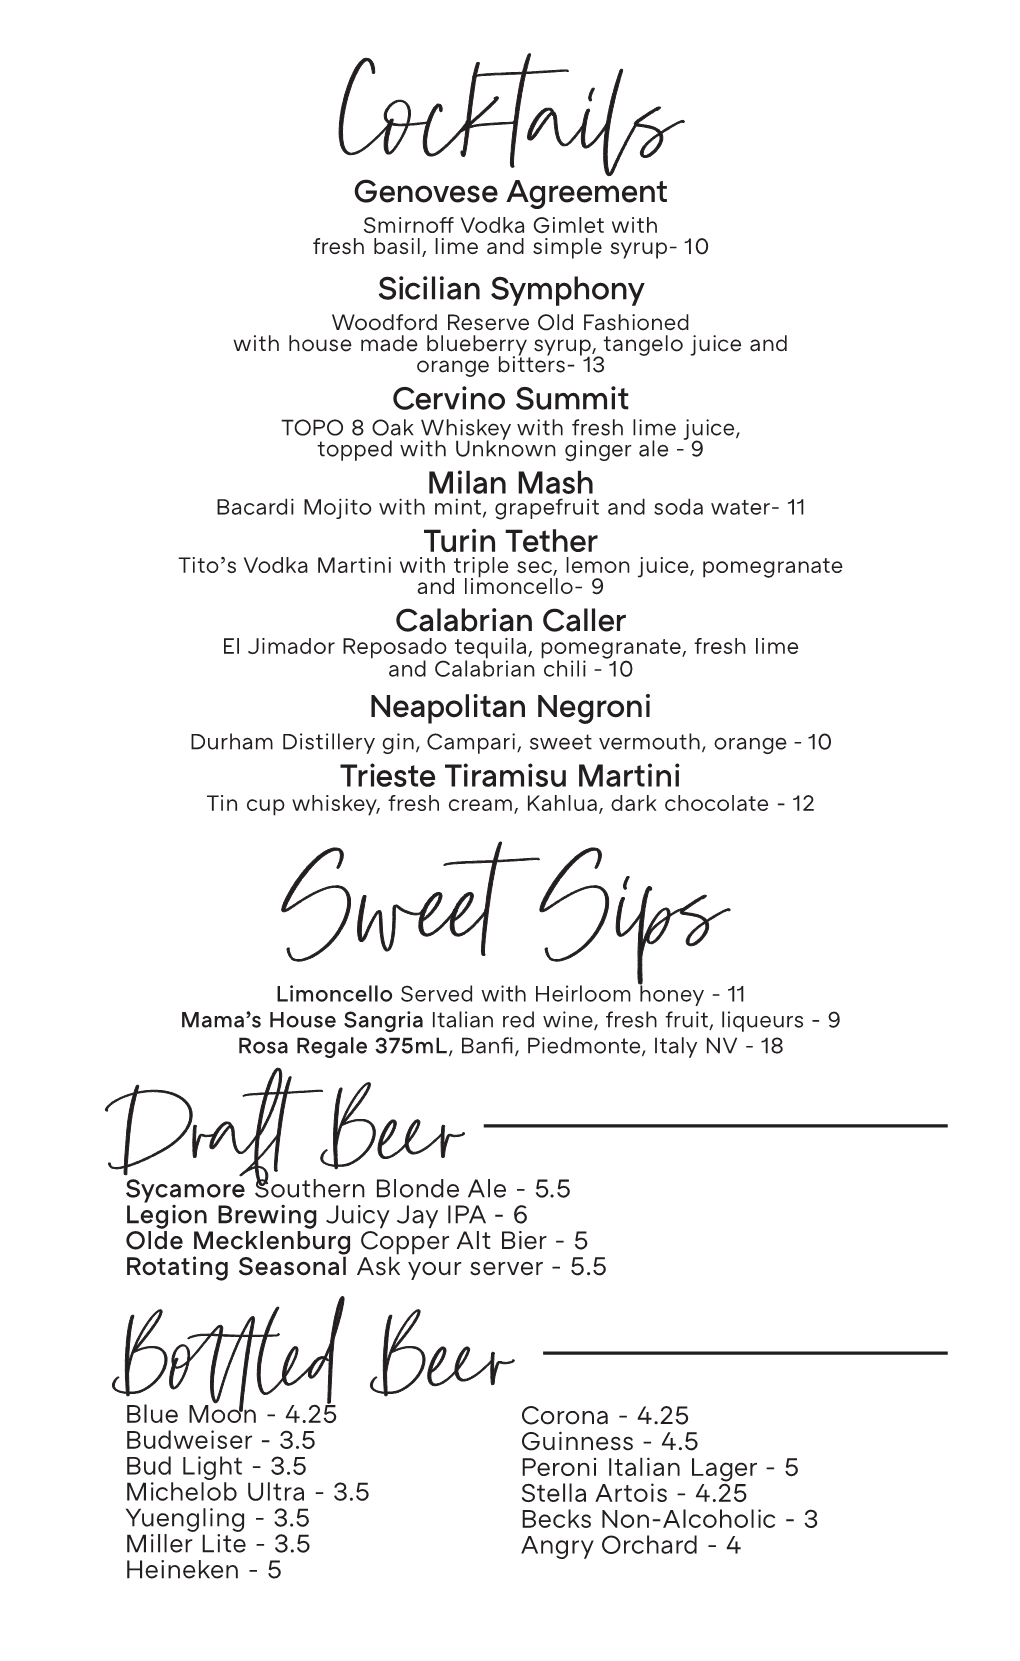 Cocktails
Genovese Agreement
Smirnoff Vodka Gimlet with
fresh basil, lime and simple syrup- 10
Sicilian Symphony
Woodford Reserve Old Fashioned
with house made blueberry syrup, tangelo juice and
orange bitters- 13
Cervino Summit
TOPO 8 Oak Whiskey with fresh lime juice,
topped with Unknown ginger ale - 9
Milan Mash
Bacardi Mojito with mint, grapefruit and soda water- 11
Turin Tether
Tito's Vodka Martini with triple sec, lemon juice, pomegranate
and limoncello- 9
Calabrian Caller
El Jimador Reposado tequila, pomegranate, fresh lime
and Calabrian chili - 10
Neapolitan Negroni
Durham Distillery gin, Campari, sweet vermouth, orange - 10
Trieste Tiramisu Martini
Tin cup whiskey, fresh cream, Kahlua, dark chocolate - 12
Sweet Sips
Limoncello Served with Heirloom honey - 11
Mama's House Sangria Italian red wine, fresh fruit, liqueurs - 9
Rosa Regale 375mL, Banfi, Piedmonte, Italy NV - 18
Draft Beer
Sycamore Southern Blonde Ale - 5.5
Legion Brewing Juicy Jay IPA - 6
Olde Mecklenburg Copper Alt Bier - 5
Rotating Seasonal Ask your server - 5.5
Bottled Beer
Blue Moon - 4.25
Budweiser - 3.5
Bud Light - 3.5
Michelob Ultra - 3.5
Yuengling - 3.5
Miller Lite - 3.5
Heineken - 5
Corona - 4.25
Guinness - 4.5
Peroni Italian Lager - 5
Stella Artois - 4.25
Becks Non-Alcoholic - 3
Angry Orchard - 4